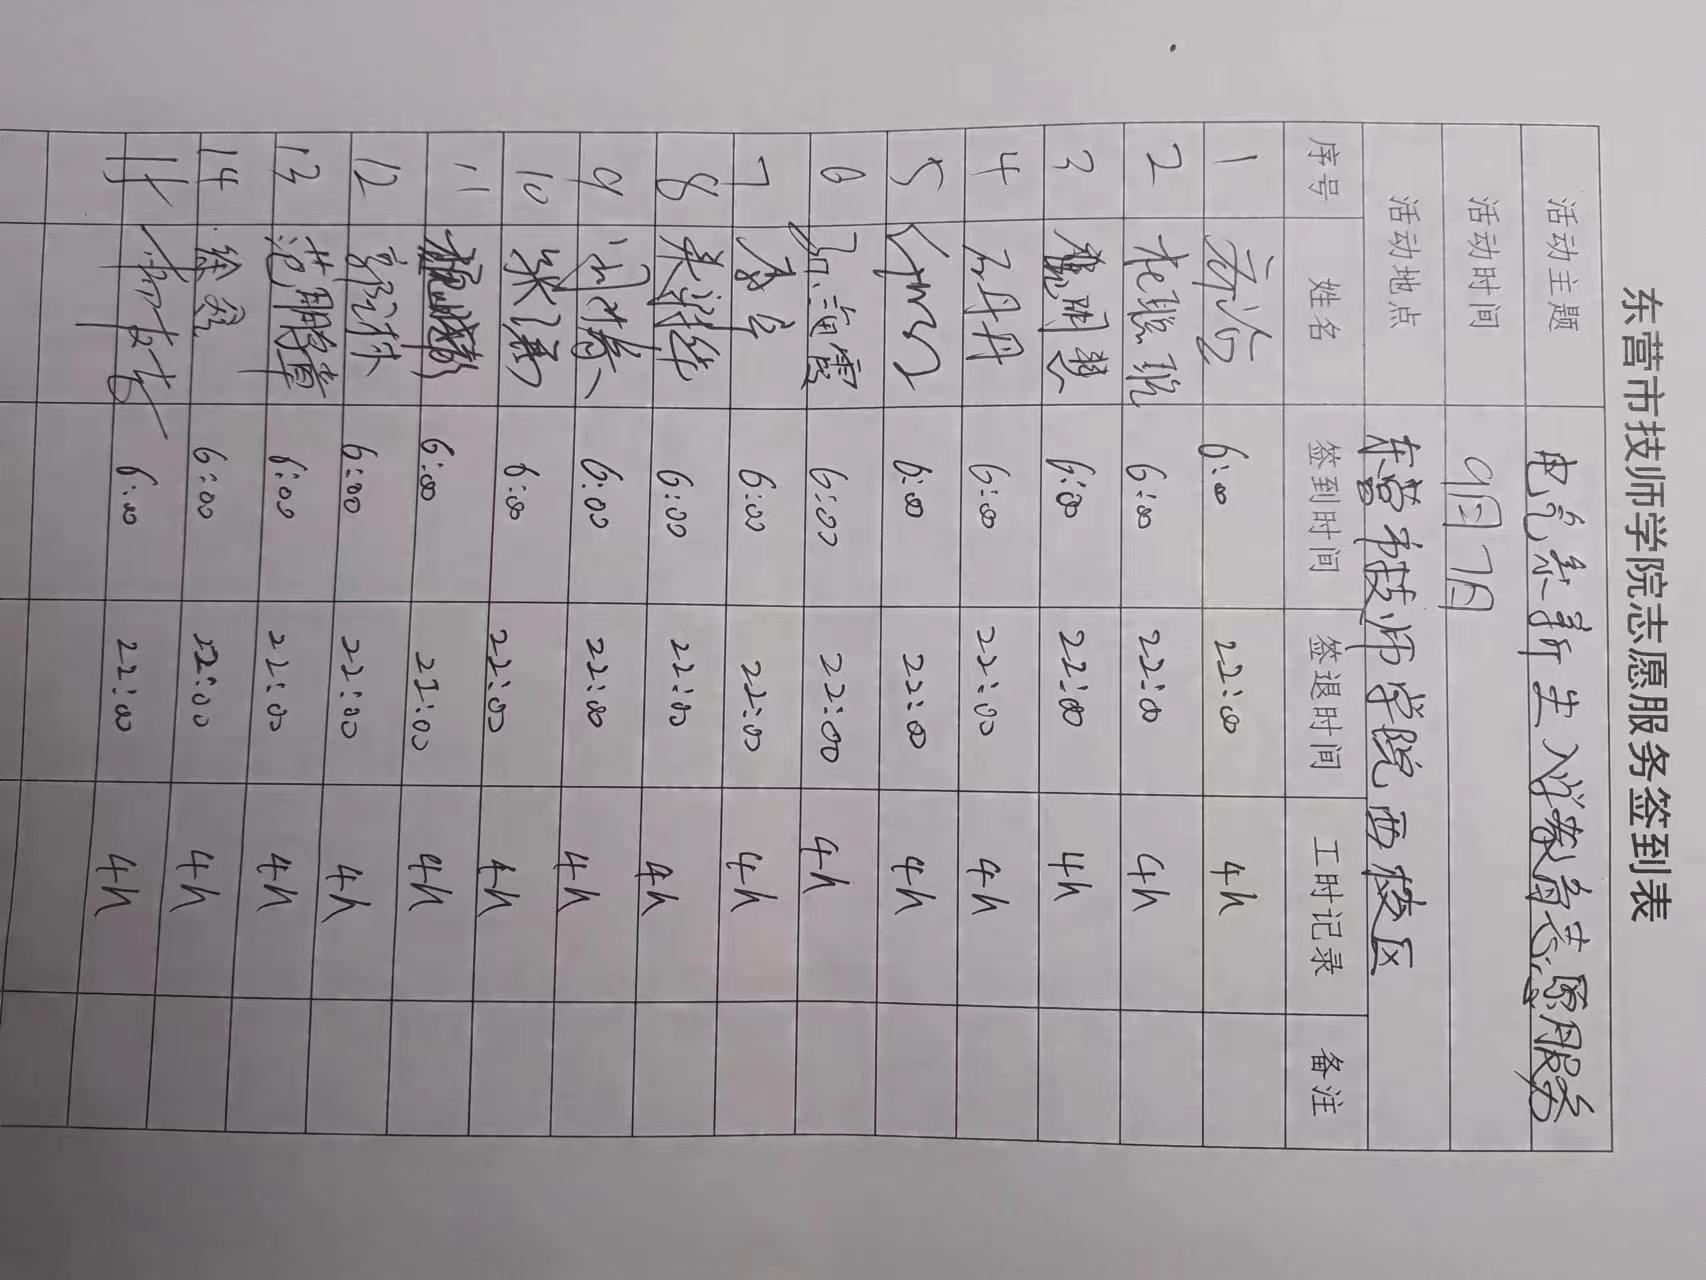 东营市技师学院志愿服务签到表
活动主题 电气系新生入学教育志愿服务
活动时间 9月7日
活动地点 东营市技师学院西校区
序号 姓名 签到时间 签退时间 工时记录 备注
1 6:00 22:00 4h
2 6:00 22:00 4h
3 6:00 22:00 4h
4 丹丹 6:00 22:00 4h
5 6:00 22:00 4h
6 6:00 22:00 4h
7 6:00 22:00 4h
8 6:00 22:00 4h
9 6:00 22:00 4h
10 6:00 22:00 4h
11 6:00 22:00 4h
12 6:00 22:00 4h
13 范 6:00 22:00 4h
14 徐 6:00 22:00 4h
15 6:00 22:00 4h